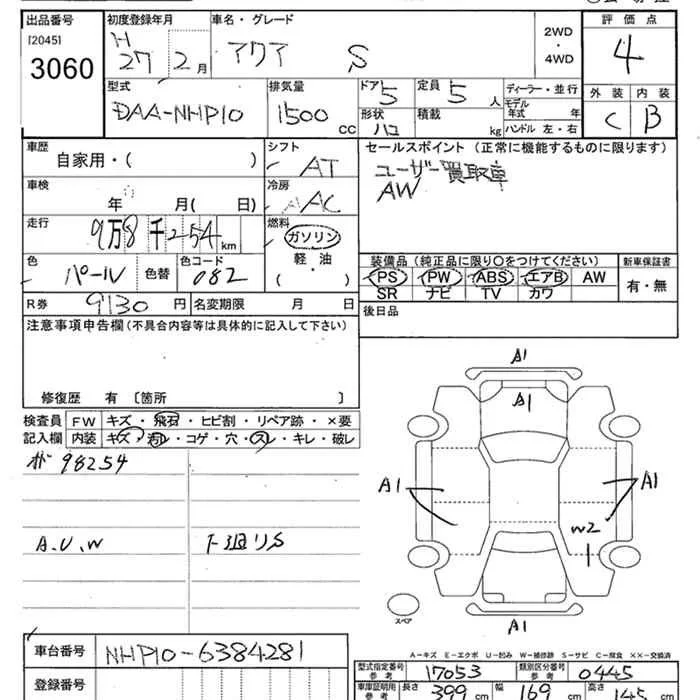 出品番号 初度登録年月 車名・グレード 評価点
[2045] H 27 2月 アクア S 2WD・4WD 4
3060
型式 排気量 ドア 5 定員 5人 ディーラー・並行 外装 内装
DAA-NHP10 1500cc 形状 ハコ 積載 kg モデル年式 年 C B
ハンドル 左・右
車歴 自家用・( ) シフト AT セールスポイント (正常に機能するものに限ります)
車検 年 月( 日) 冷房 AAC ユーザー買取車
AW
走行 9万8千254km 燃料 ガソリン
軽・油
( ・ )
色 パール 色替 色コード 082
装備品 (純正品に限り○をつけてください) 新車保証書
PS PW ABS エアB AW 有・無
SR ナビ TV カワ
R券 9130円 名変期限 月 日 後日品
注意事項申告欄(不具合内容等は具体的に記入して下さい)
修復歴 有 〔箇所 〕
検査員 FW キズ・飛石・ヒビ割・リペア跡・×要
記入欄 内装 キズ・汚レ・コゲ・穴・スレ・キレ・破レ
98254
A.U.W
A1
A1
A1 A1
W2
スペア
A1
A-キズ E-エクボ U-凹み W-補修跡 S-サビ C-腐食 XX-交換済
車台番号 NHP10-6384281
登録番号
型式指定番号 参考 17053 類別区分番号 参考 0445
車庫証明用 参考 長さ 399cm 幅 169cm 高さ 145cm